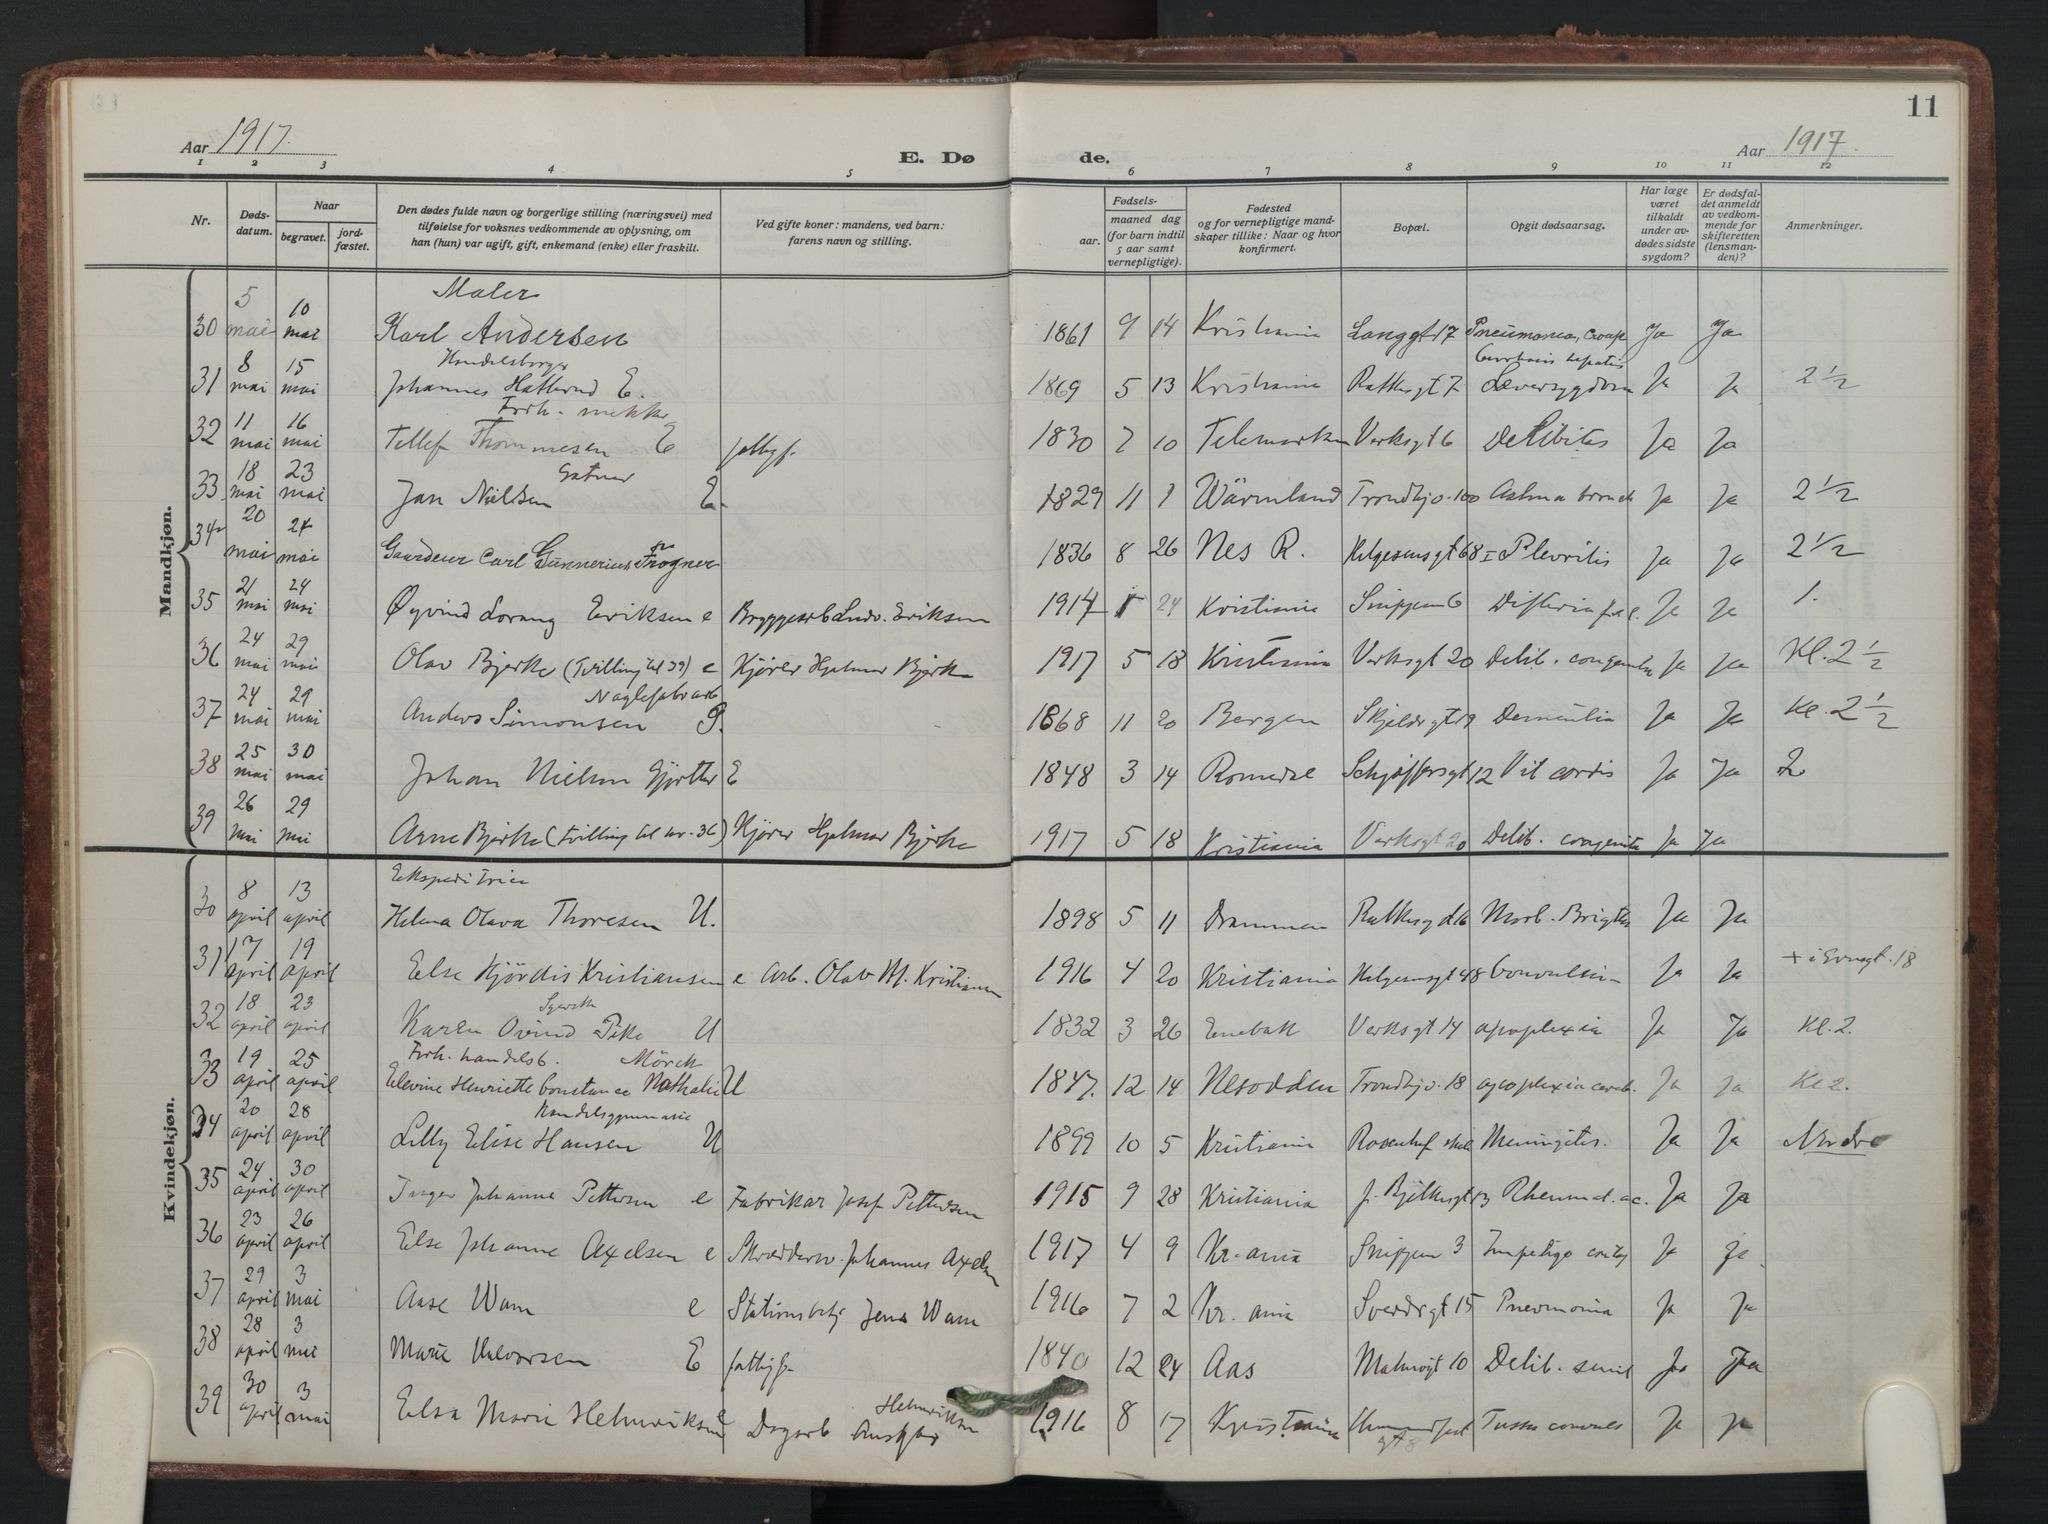 11
Aar 1917.
E. Døde.
Aar 1917.
1 2 3 4 5 6 7 8 9 10 11 12
Nr.
Døds-
datum.
Naar
begravet.
jord-
fæstet.
Den dødes fulde navn og borgerlige stilling (næringsvei) med
tilføielse for voksnes vedkommende av oplysning, om
han (hun) var ugift, gift, enkemand (enke) eller fraskilt.
Ved gifte koner: mandens, ved barn:
farens navn og stilling.
Fødsels-
aar.
maaned dag
(for barn indtil
5 aar samt
vernepligtige).
Fødested
og for vernepligtige mand-
skaper tillike: Naar og hvor
konfirmert.
Bopæl.
Opgit dødsaarsag.
Har læge
været
tilkaldt
under av-
dødes sidste
sygdom?
Er dødsfal-
det anmeldt
av vedkom-
mende for
skifteretten
(lensman-
den)?
Anmerkninger.
Mandkjøn.
Maler
30 5 mai 10 mai Karl Andersen 1861 9 14 Kristiania Langgt 17 Pneumonia, Croup Ja Ja
31 8 mai 15 mai Johannes E. 1869 5 13 Kristiania Rathkesgt 7 Leversygdom Ja Ja 2 1/2
32 11 mai 16 mai Tellef Thommesen E fattigf. 1830 7 10 Telemarken Verksgt 6 Debilitas Ja Ja
33 18 mai 23 mai Jan Nielsen E. 1829 11 1 Wärmland Trondhjv. 100 Astma bronch Ja Ja 2 1/2
34 20 mai 24 mai Gaardeier Carl Gunnerius Frogner 1836 8 26 Nes R. Helgesensgt 68 I Plevritis Ja Ja 2 1/2
35 21 mai 24 mai Øyvind Lorang Eriksen e Bryggearb Ludv. Eriksen 1914 1 24 Kristiania Snippen 6 Difteria Ja Ja 1.
36 24 mai 29 mai Olav Bjerke (Tvilling til 39) e Kjører Hjalmar Bjerke 1917 5 18 Kristiania Verksgt 20 Debil. congenita Ja Ja Kl. 2 1/2
Naglefabrarb
37 24 mai 29 mai Anders Simonsen G. 1868 11 20 Bergen Skjeldsgt 19 Dementia Ja Ja Kl. 2 1/2
38 25 mai 30 mai Johan Nielsen Gjørtler E 1848 3 14 Romedal Schjøffersgt 12 Vit cordis Ja Ja 2
39 26 mai 29 mai Arne Bjerke (tvilling til nr. 36) Kjører Hjalmar Bjerke 1917 5 18 Kristiania Verksgt 20 Debil. congenita Ja Ja
Kvindekjøn.
Ekspeditrice
30 8 april 13 april Helena Olava Thoresen U. 1898 5 11 Drammen Morb. Brigtii Ja Ja
31 17 april 19 april Else Hjørdis Kristiansen e Arb. Olav M. Kristiansen 1916 4 20 Kristiania Helgesensgt 48 Convulsion Ja Ja
32 18 april 23 april Karen Ovind Pike U 1832 3 26 Enebak Verksgt 14 apoplexia Ja Ja Kl. 2.
Frh. handelsb. Mörch
33 19 april 25 april Elevine Henriette Constance Nathalie U 1847. 12 14 Nesodden Trondhjv. 18 apoplexia cereb. Ja Ja Kl 2.
Handelsgymnasie
34 20 april 28 april Lilly Elise Hansen U 1899 10 5 Kristiania Rosenhof skole Meningitis. Ja Ja Nordre
35 24 april 30 april Inger Johanne Pettersen e Fabrikar Josef Pettersen 1915 9 28 Kristiania J. Bjelkesgt 13 Rheumat. ac. Ja Ja
36 23 april 26 april Else Johanne Axelsen e Skræddersv. Johannes Axelsen 1917 4 9 Kr-ania Snippen 3 Impetigo contag Ja Ja
37 29 april 3 mai Aase Wam e Stationsbetj Jens Wam 1916 7 2 Kr. ania Sverdrgt 15 Pnevmonia Ja Ja
38 28 april 3 mai Marie Halvorsen E fattigf. 1840 12 24 Aas Malmøgt 10 Debil. senil Ja Ja
39 30 april 3 mai Elsa Marie Helmriksen e Dagarb Helmriksen 1916 8 17 Kristiania Tussis convuls Ja Ja